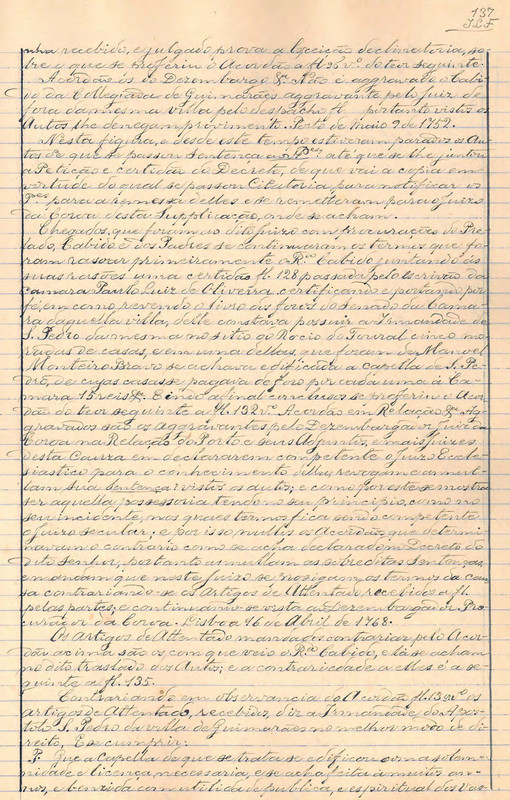 137
J.L.F.
nha recebido, e julgado prova a Exceição declinatoria, so-
bre o que se proferiu o Acordão a fl. 25 vº do teor seguinte:
Acordão ós do Dezembargo &ª Não é aggravado o Cabi-
do da Collegiada de Guimarães agravante pelo juiz de
fora da mesma villa pelo despacho fl. portanto vistos os
Autos lhe denegam provimento. Porto de Maio 9 de 1752.
Nesta figura, e desde este tempo estiveram parados os Au-
tos de que se passou Sentença até que se lhe juntou
a Petição e certidão do Decreto, de que vai a copia em
virtude do qual se passou Citatoria para notificar os
para a remessa delles e se remetteram para o juizo
da Coroa desta Supplicação, onde se acham.
Chegados, que foram ao dito juizo com procurações do Pre-
lado, Cabido e dos Padres se continuaram os termos que fo-
ram rasoar primeiramente o Rdo Cabido juntando ás
suas rasões uma certidão fl. 128 passada pelo escrivão da
Camara Paulo Luiz de Oliveira certificando e portando por
fé, em como revendo o livro dos foros do Senado da Cama-
ra daquella villa, delle constava possuir a Irmandade de
S. Pedro da mesma no sitio do Rocio do Toural cinco mo-
radas de casas, e em uma dellas, que foram de Manoel
Monteiro Bravo se achava edificada a Capella de S. Pe-
dro, de cujas casas se pagava de foro por cada uma á Ca-
mara 15 reis &ª. E indo afinal conclusos se proferiu o Acor-
dão do teor seguinte a fl. 132 vº. Acordão em Relação &ª Ag-
gravados são os aggravantes pelo Dezembargador juiz da
Coroa na Relação do Porto e seus Adjuntos, e mais juizes
desta Cauza em declararem competente o juizo Eccle-
siastico para o conhecimento della; revogam e annul-
lam sua sentença vistos os autos; e como por este se mostra
ser aquella possessoria tendo no seu principio, como no
seu incidente, nos quaes termos fica sendo competente
o juizo secular; e por isso nullos os Acordãos que determi-
navam o contrario como se acha declarado no Decreto do
dito Senhor, portanto annullam as sobreditas sentenças,
e mandam que neste juizo se prosigam os termos da cau-
sa contrariando-se os Artigos de Attentado recebidos a fl.
pelas partes, e continuando-se vista ao Dezembargador Pro-
curador da Coroa. Lisboa 16 de Abril de 1768.
Os Artigos de Attentado mandados contrariar pelo Acor-
dão acima são os com que veio o Rdo Cabido, e lá se acham
no dito traslado dos Autos; e a contrariedade a elles é a se-
guinte a fl. 135.
Contrariando em observancia do Acordão fl. 132 vº os
artigos de Attentado, recebidos, diz a Irmandade do Apos-
tolo S. Pedro da villa de Guimarães no melhor modo de di-
reito. E se cumprir:
P. Que a Capella de que se trata se edificou com a solem-
nidade e licença, necessaria, e se acha feita á muitos an-
nos, e benzida com utilidade publica, e espiritual dos vas-